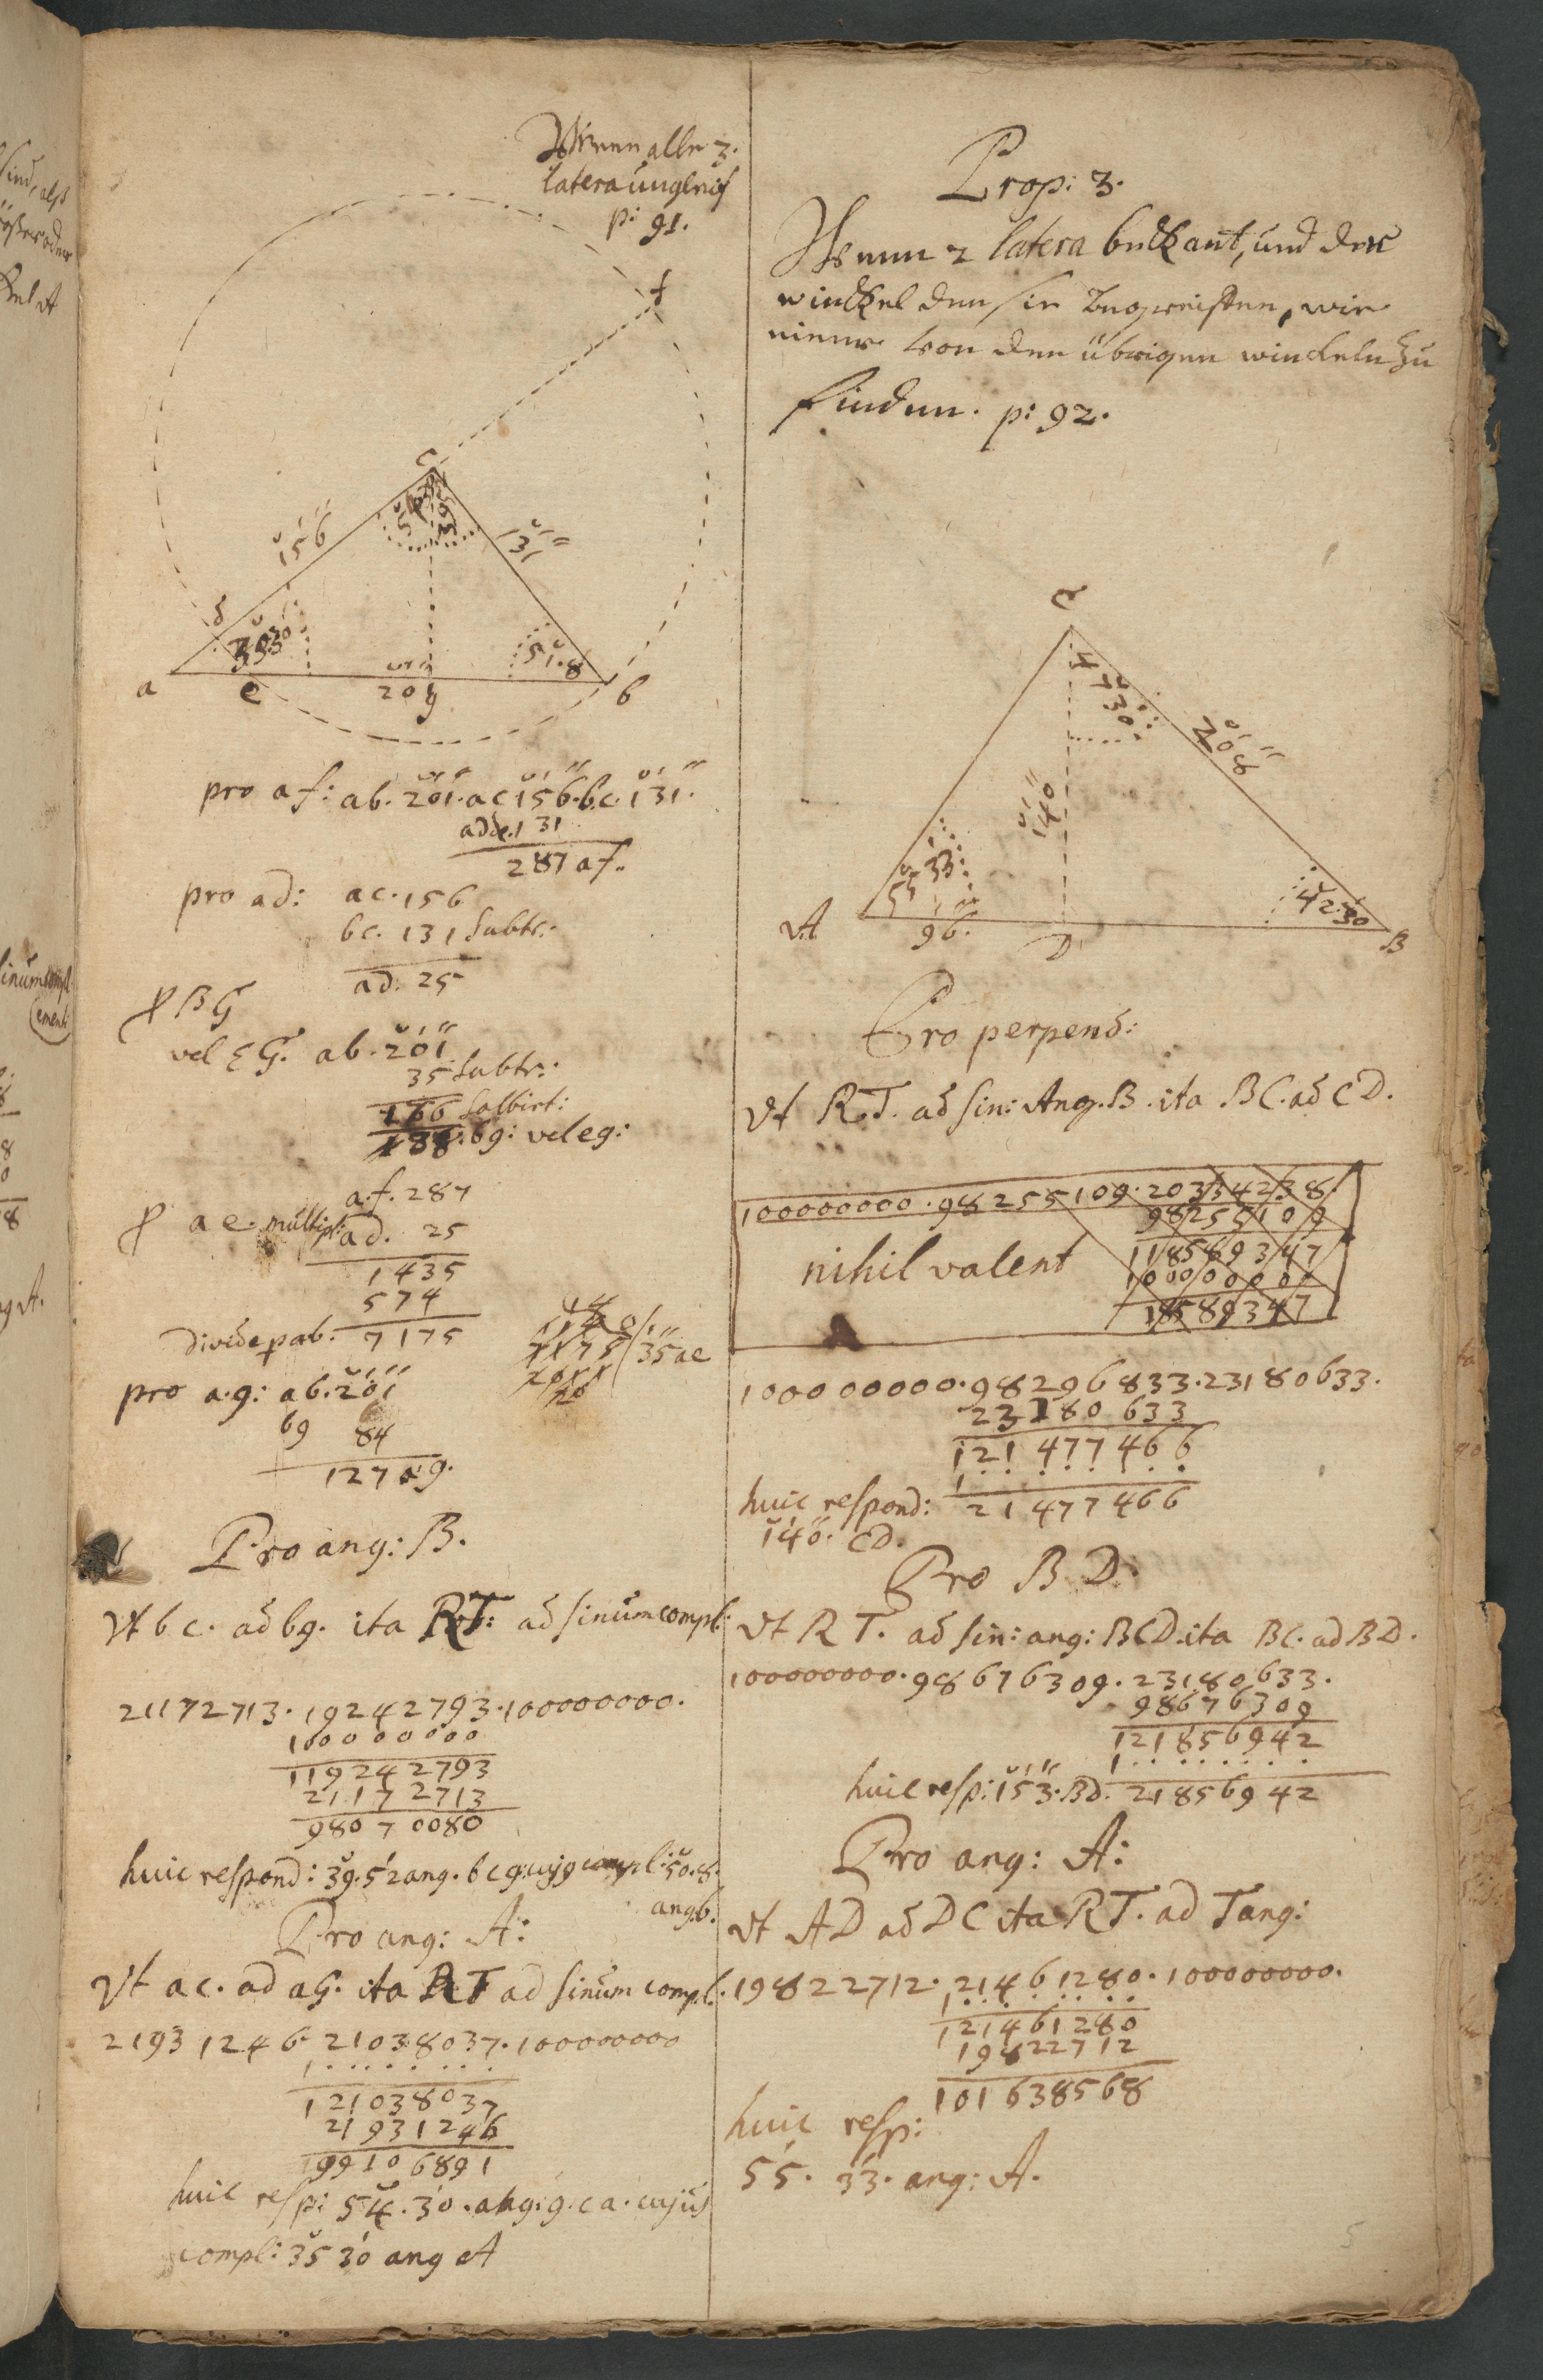 Wenn alle 3.
latera ungleich
p: 91.
f
c
156
131
d
a
e
201
g
51.8
b
pro af: ab. 201. ac 156. bc. 131.
adde. 131
287 af.
pro ad: ac. 156
bc. 131 subtr:
ad. 25
BG
vel EG. ab. 201
35 subtr:
166
bg: vel eg:
af. 287
ae. multipl: ad. 25
1435
574
divide p ab: 7175
35 ae
pro a.g: ab. 201
bg 84
127 ag.
Pro ang: B.
Vt bc. ad bg. ita RT: ad sinum compl:
21172713. 19242793. 100000000.
100000000
119242793
21172713
98070080
huic respond: 39. 52 ang. bcg. cujg compl: 50. 8.
ang b.
Pro ang: A:
Vt ac. ad aG. ita RT ad sinum compl:
21931246 21038037. 100000000
1 . . . . . . . .
121038037
21931246
99106891
huic resp: 54. 30. ang: g. c a. cujus
compl: 35 30 ang A
Prop: 3.
Wenn 2 latera bekant, und der
winckel den sie begreiffen, wie
einer von den übrigen winckeln zu
finden. p: 92.
C
47 30
208
140
55 33
42. 30
A
96.
D
B
Pro perpend:
Vt R.T. ad sin: Ang. B. ita BC. ad CD.
100000000. 98255109. 20334238.
98255109
118589347
100000000
18589347
nihil valent
100000000. 98296833. 23180633.
23180633
121477466
1 . . . . . . . .
huic respond: 21477466
140. CD.
Pro BD:
Vt RT. ad sin: ang: BCD. ita BC. ad BD.
100000000. 98676309. 23180633.
98676309
121856942
1 . . . . . . . .
huic resp: 153. BD. 21856942
Pro ang: A:
Vt AD ad DC ita RT. ad Tang:
19822712. 21461280. 100000000.
1 . . . . . . . .
121461280
19822712
101638568
huic resp:
55. 33. ang: A.
5